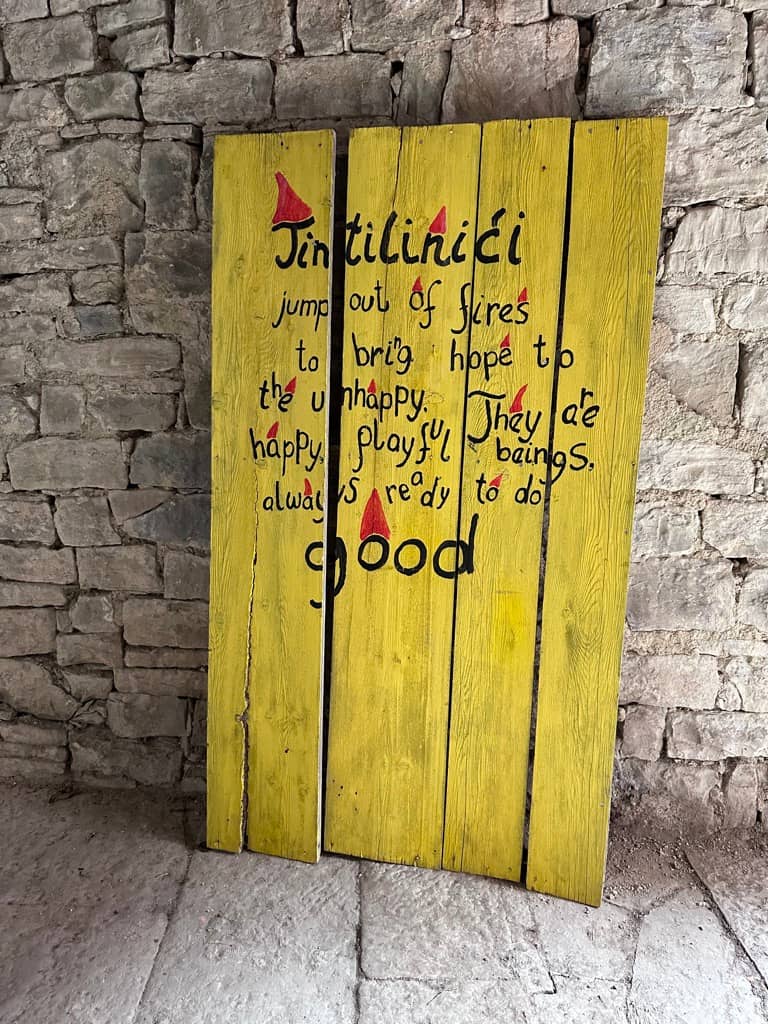 Tintilinići
jump out of fires
to bring hope to
the unhappy. They are
happy, playful beings,
always ready to do
good